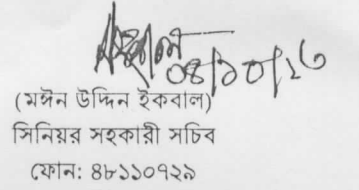 ০৪/১০/২৩
(মঈন উদ্দিন ইকবাল)
সিনিয়র সহকারী সচিব
ফোন: ৪৮১১০৭২৯